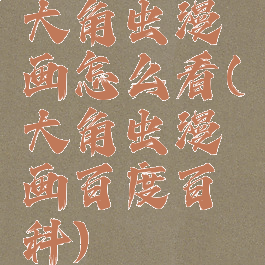 大角虫漫
画怎么看(
大角虫漫
画百度百
科)